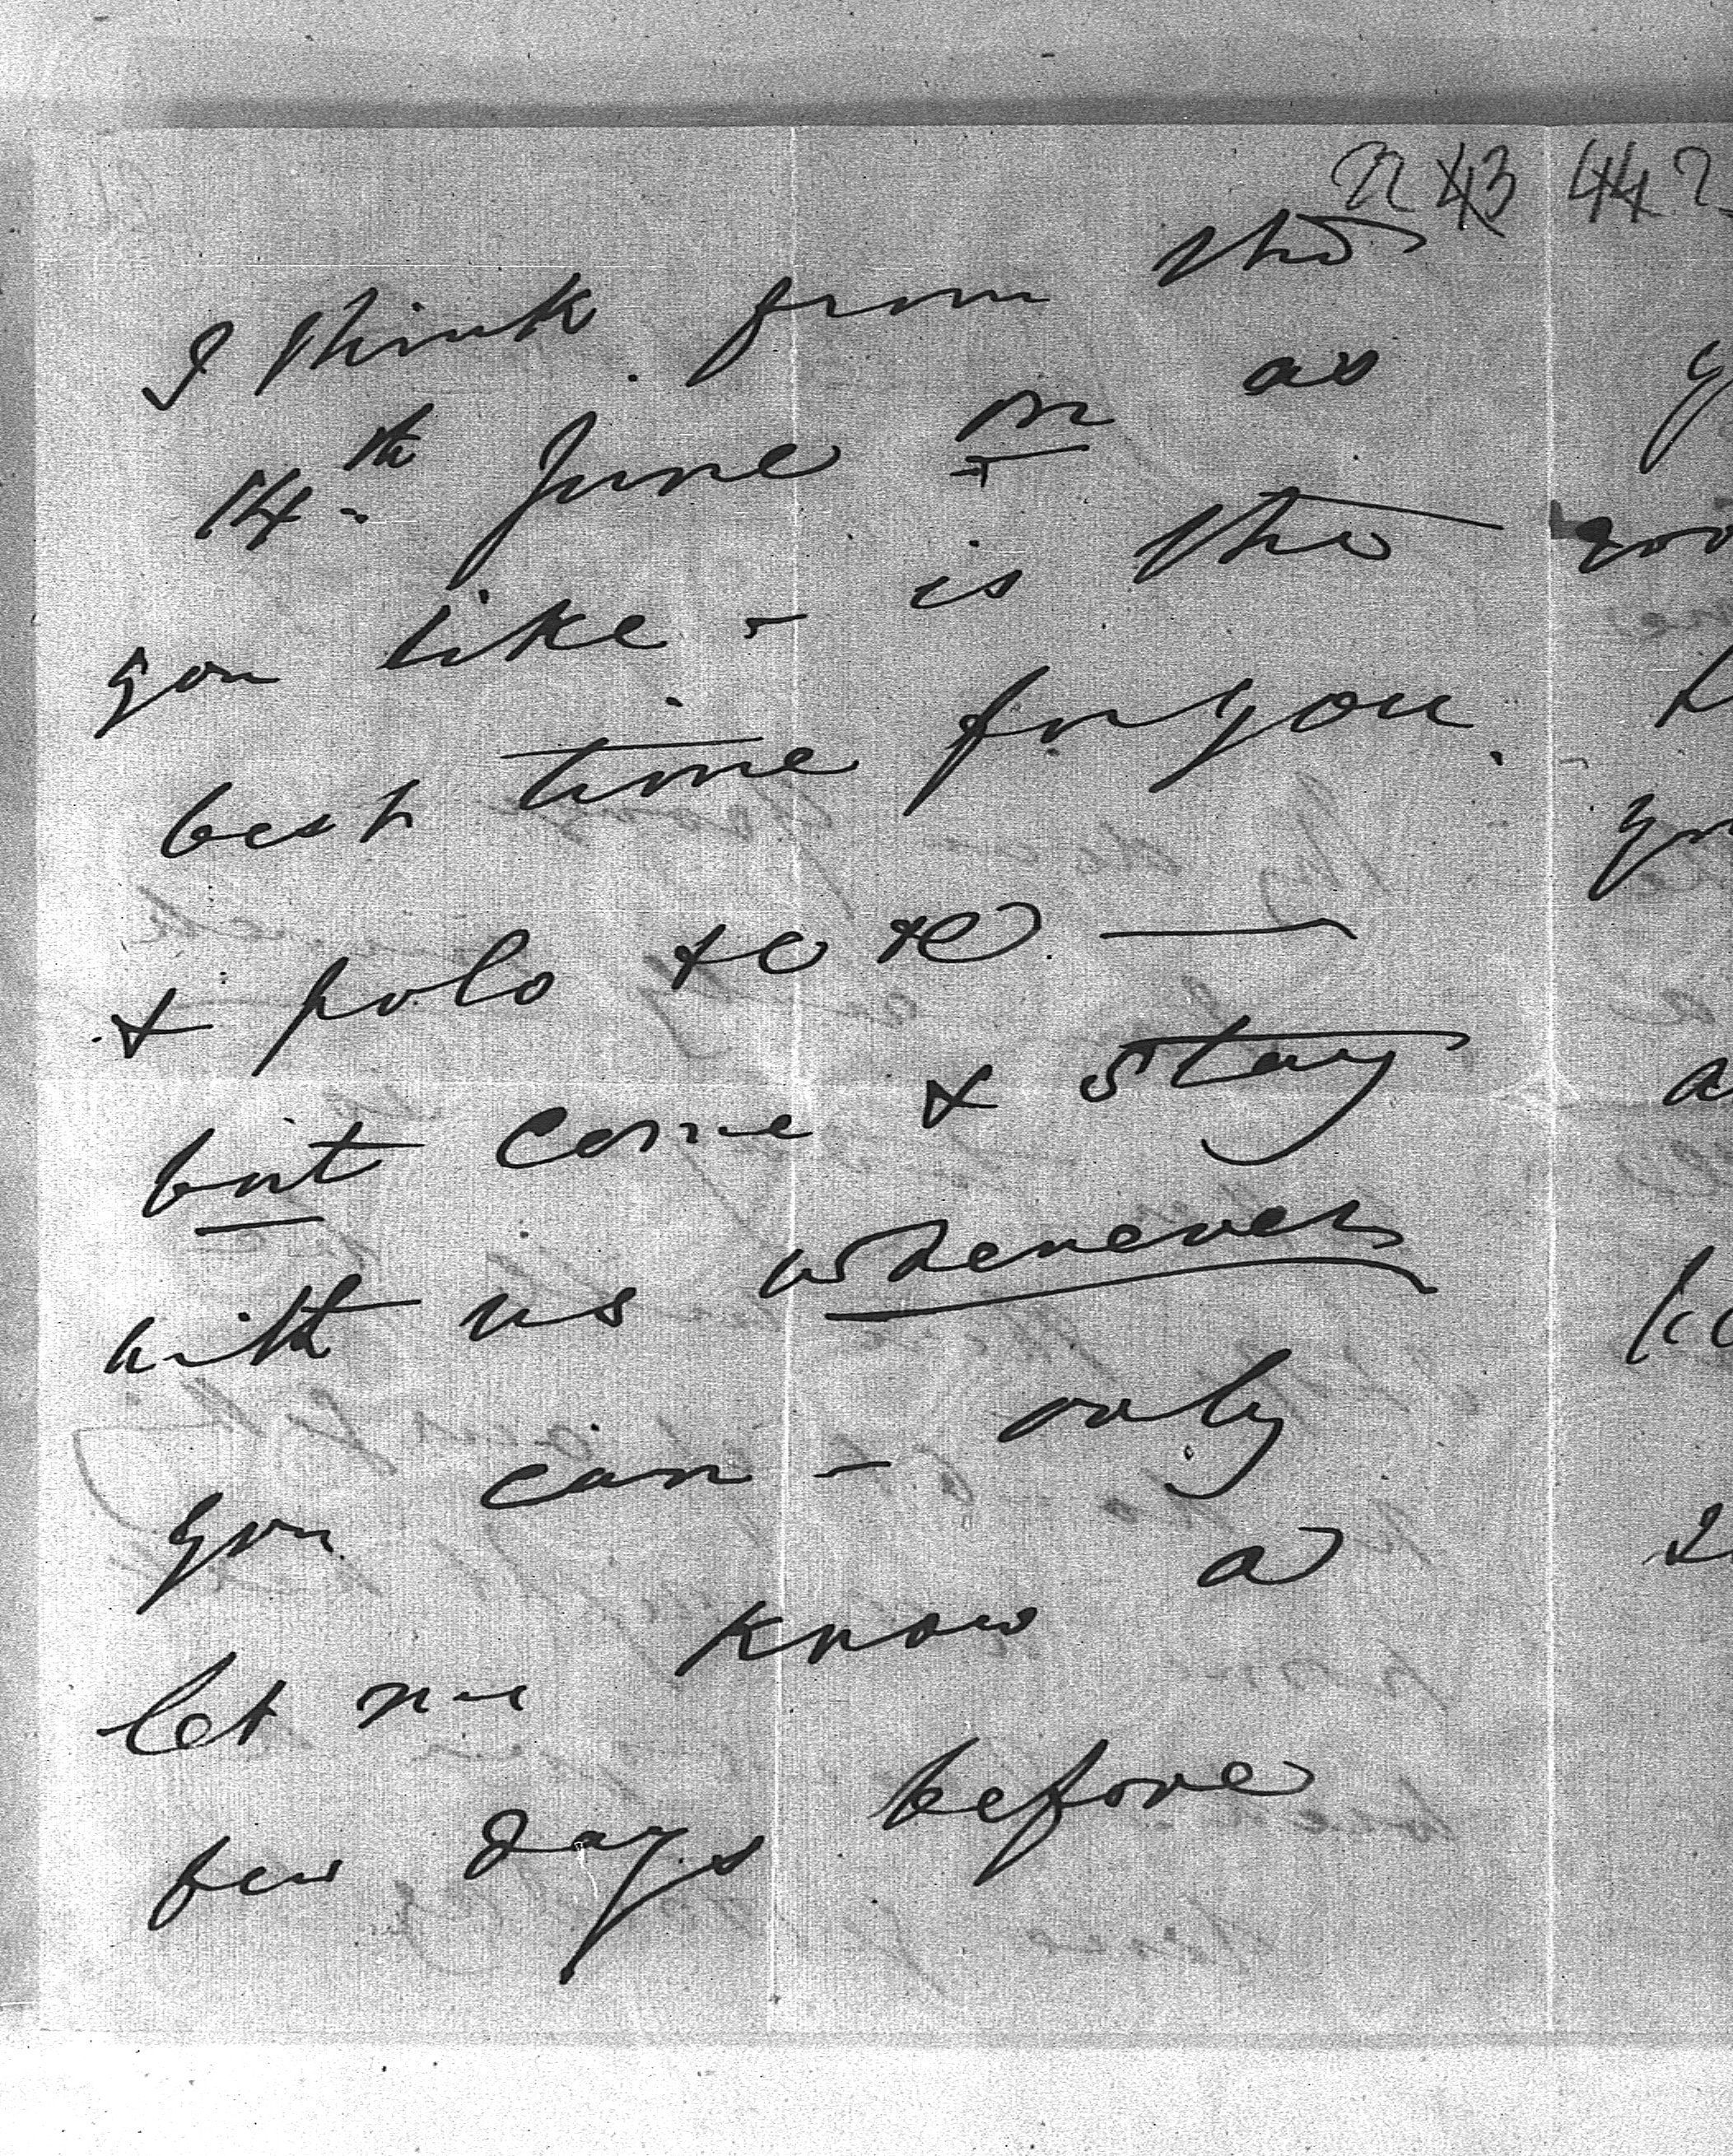 43 44
I think from the
14th June on as
you like - is the
best time for you.
& polo &c &c —
but come & stay
with us whenever
you can - only
let me know a
few days before